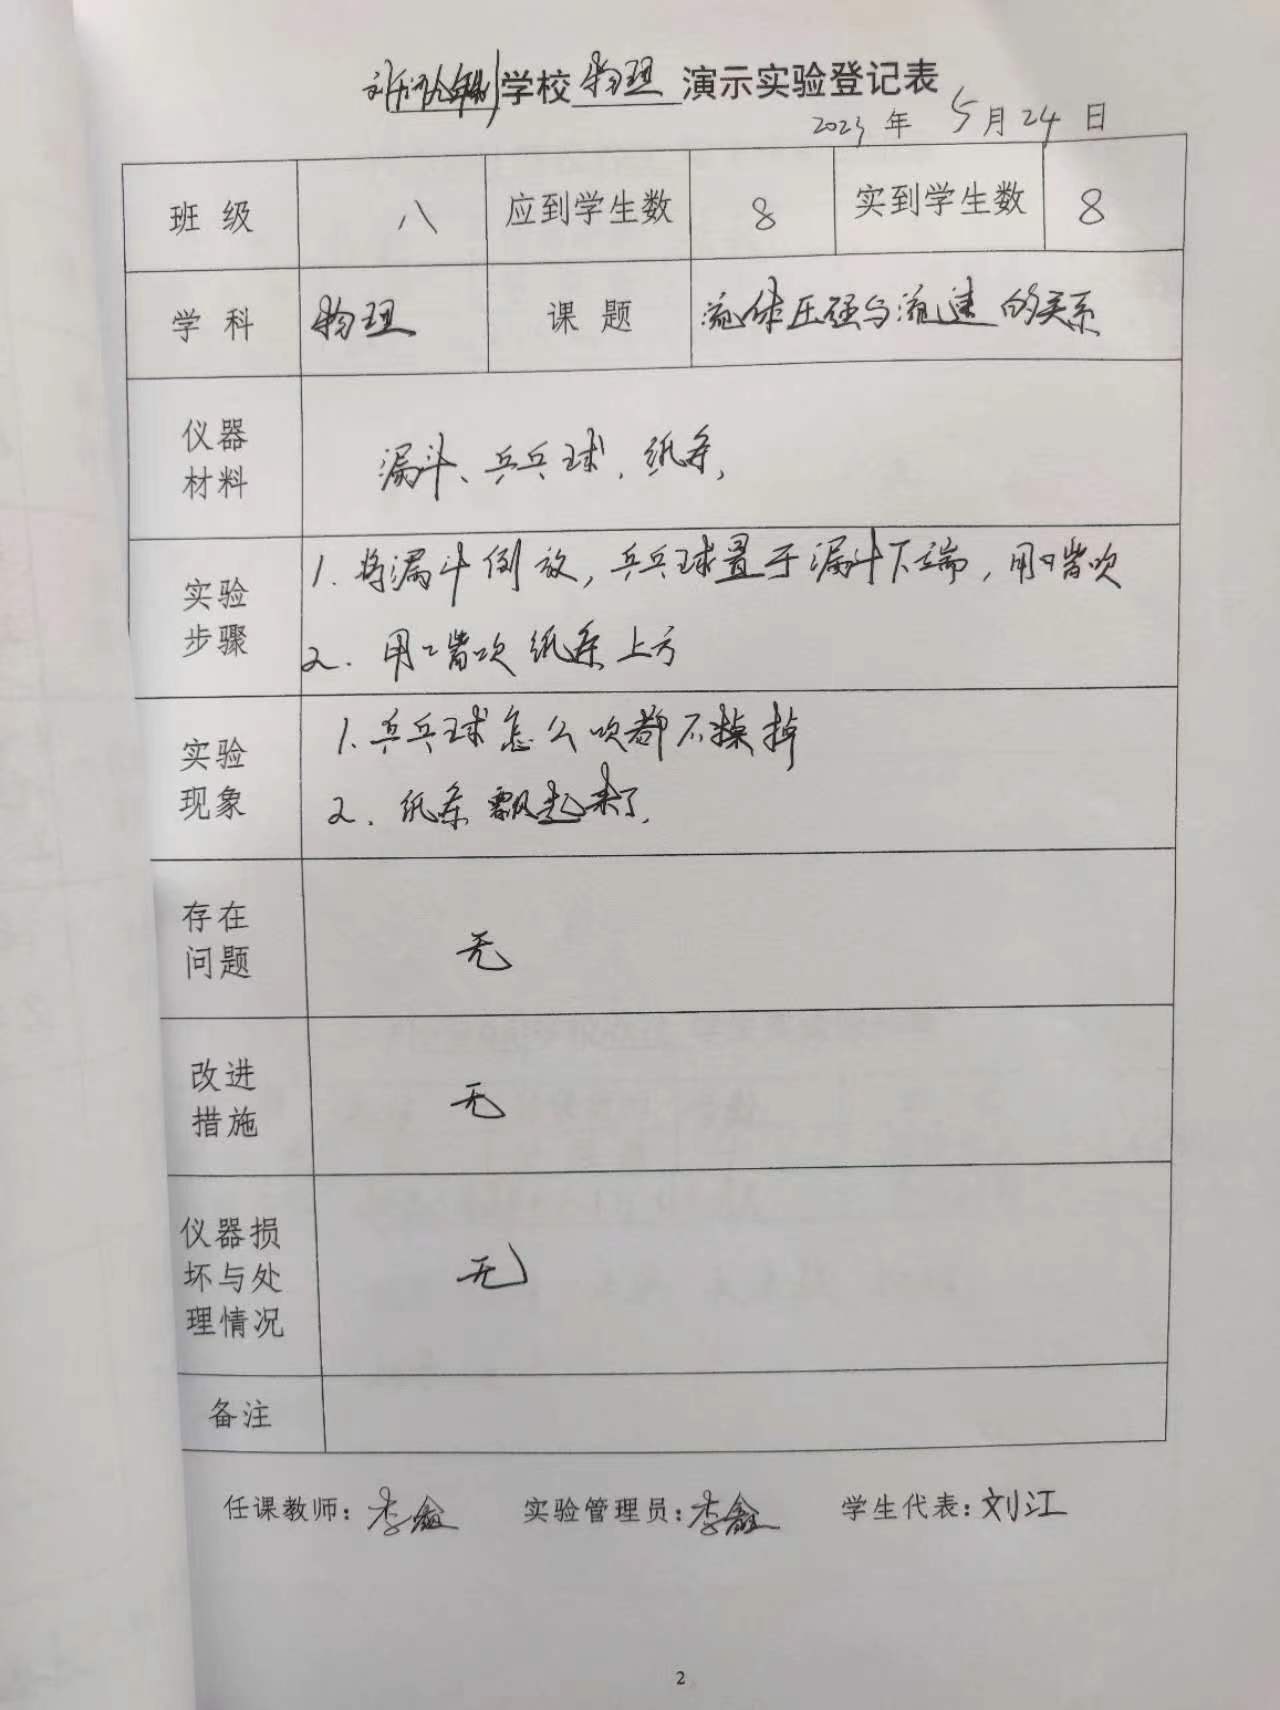 学校 物理 演示实验登记表
2023 年 5 月 24 日
班 级 八 应到学生数 8 实到学生数 8
学 科 物理 课 题 流体压强与流速的关系
仪器
材料
漏斗、乒乓球、纸条,
实验
步骤
1. 将漏斗倒放, 乒乓球置于漏斗下端, 用嘴吹
2. 用嘴吹纸条上方
实验
现象
1. 乒乓球怎么吹都不掉
2. 纸条飘起来了.
存在
问题
无
改进
措施
无
仪器损
坏与处
理情况
无
备注
任课教师: 李鑫 实验管理员: 李鑫 学生代表: 刘江
2